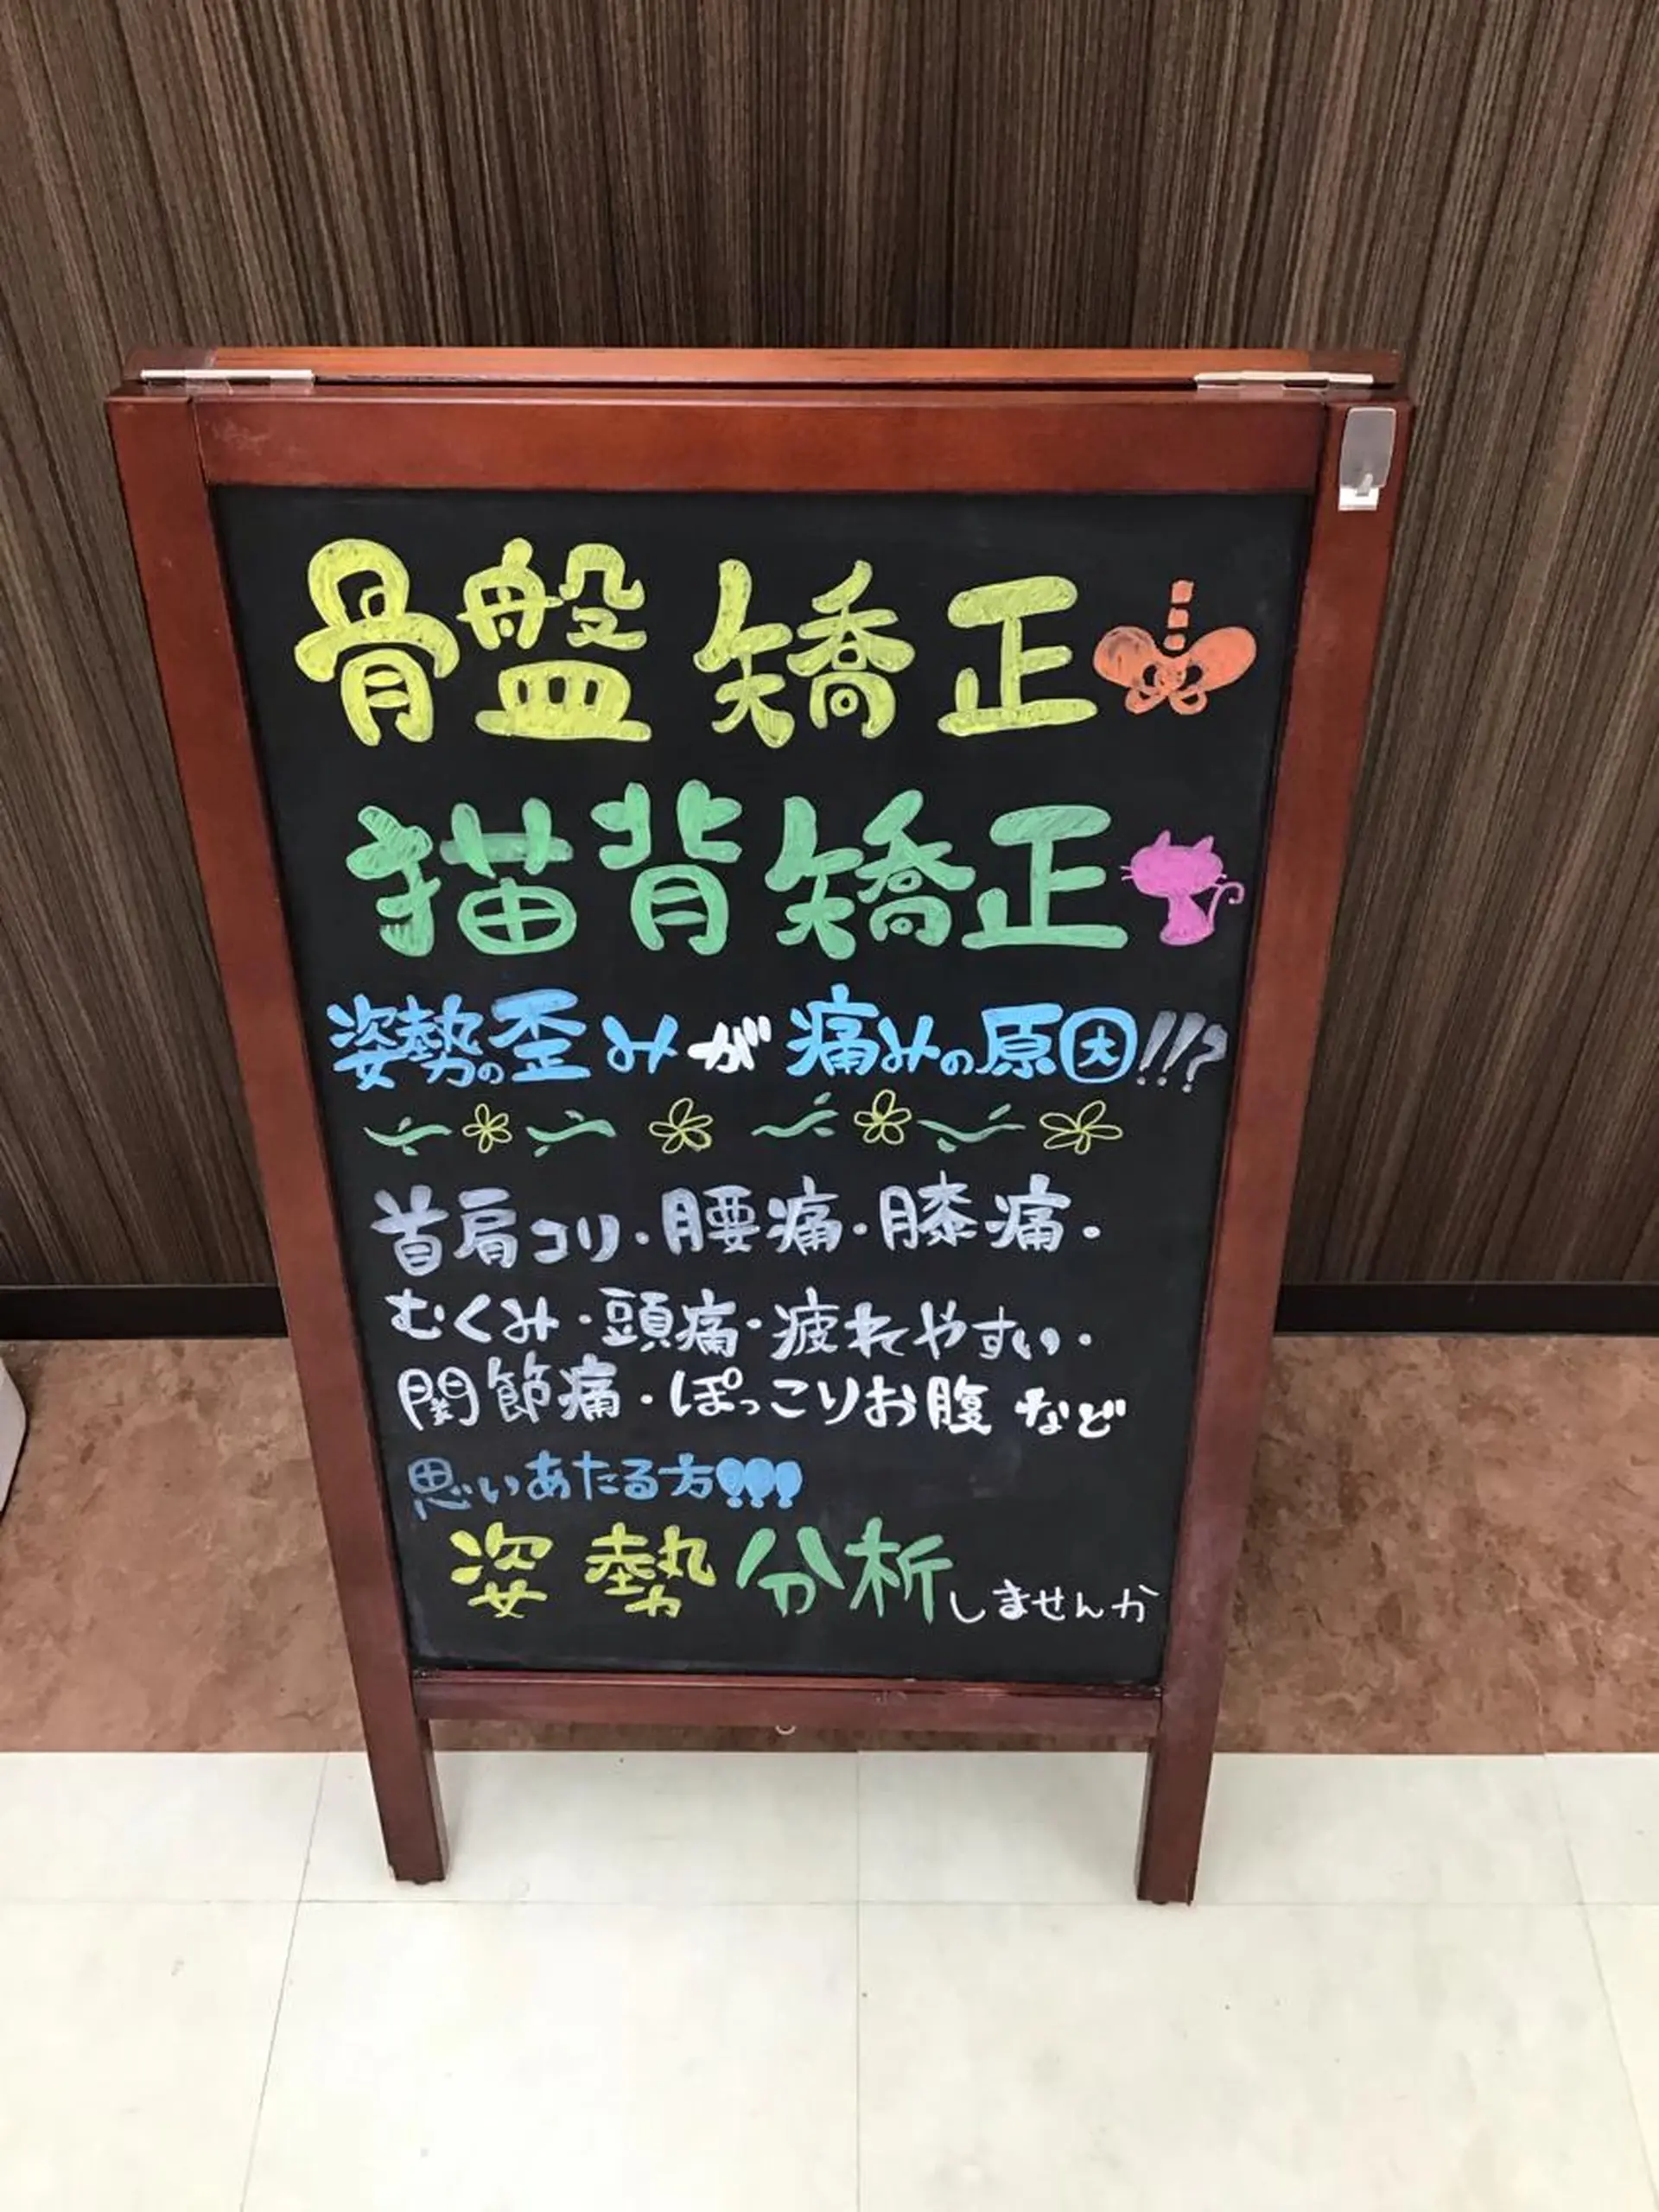 骨盤矯正
猫背矯正
姿勢の歪みが痛みの原因!!?
首肩コリ・腰痛・膝痛・
むくみ・頭痛・疲れやすい・
関節痛・ぽっこりお腹 など
思いあたる方!!!
姿勢分析しませんか